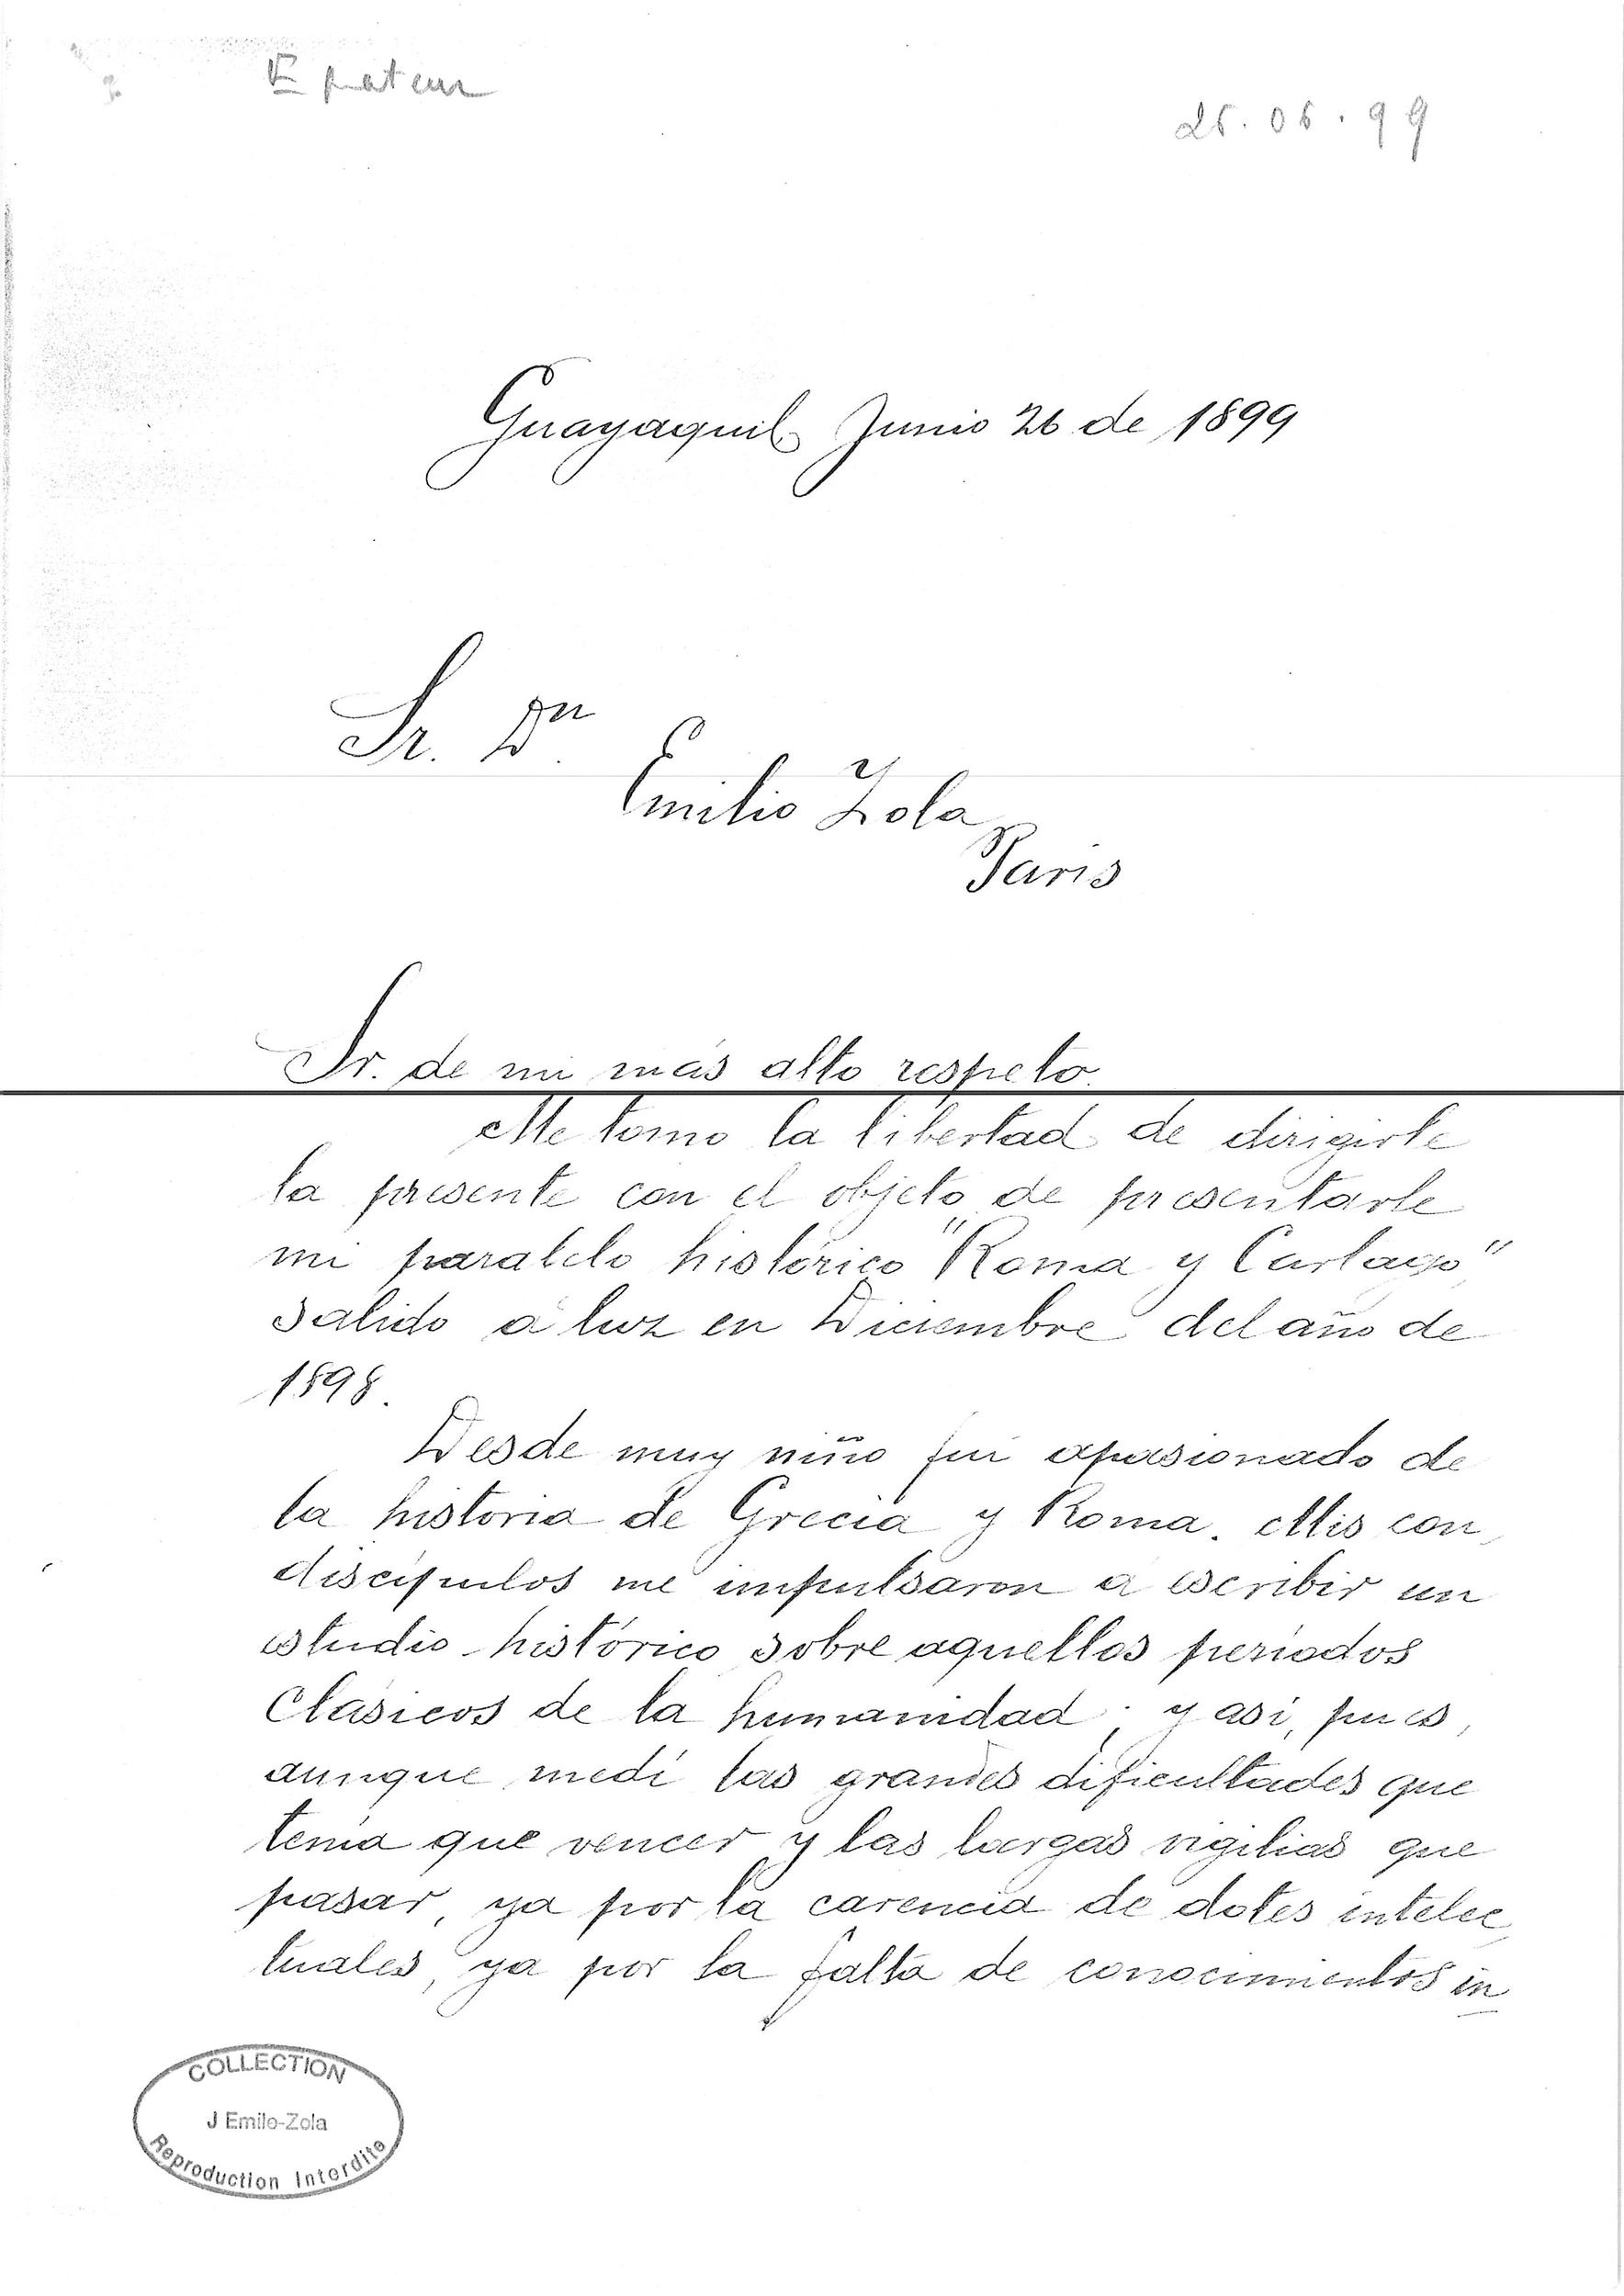 26.06.99
Guayaquil Junio 26 de 1899
Sr. Dn
Emilio Zola
Paris
Sr. de mi mas alto respeto.
Me tomo la libertad de dirigirle
la presente con el objeto de presentarle
mi paralelo histórico "Roma y Cartago"
salido a luz en Diciembre del año de
1898.
Desde muy niño fui apasionado de
la historia de Grecia y Roma. Mis con
discípulos me impulsaron a escribir un
estudio histórico sobre aquellos periodos
Clásicos de la humanidad; y así, pues,
aunque medí las grandes dificultades que
tenía que vencer y las largas vigilias que
pasar, ya por la carencia de dotes intelec
tuales, ya por la falta de conocimientos in
COLLECTION
J Emile-Zola
Reproduction Interdite